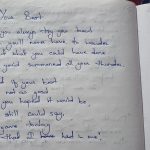 Your Best
you always try your best
you'll never have to wonder
what you could have done
you'd summoned all your thunder.
if your best
not as good
you hoped it would be,
still could say,
today
that I have had in me."